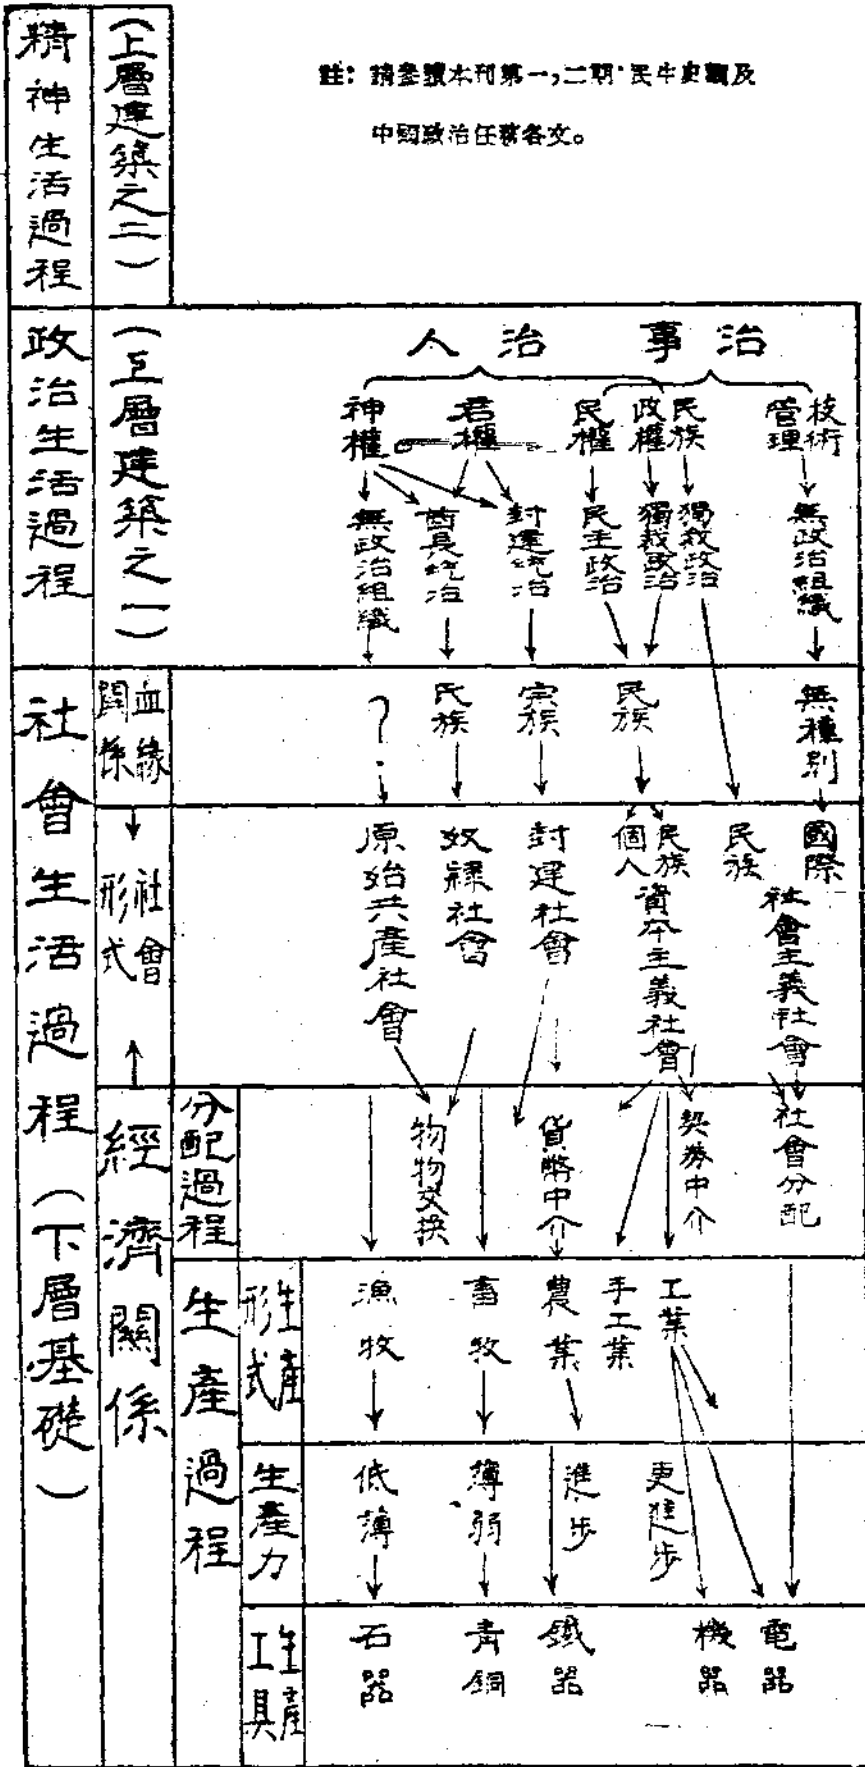 註：請參讀本刊第一，二期·民生史觀及
中國政治任務各文。
精神生活過程
（上層建築之二）
政治生活過程
（上層建築之一）
人治
事治
神權
君權
民權
政權
民族
管理
技術
無政治組織
酋長統治
封建統治
民主政治
獨裁政治
獨裁政治
無政治組織
社會生活過程（下層基礎）
血緣
關係
？
氏族
宗族
民族
無種別
社會
形式
原始共產社會
奴隸社會
封建社會
個人
民族
資本主義社會
民族
國際
社會主義社會
經濟關係
分配過程
物物交換
貨幣中介
契券中介
社會分配
生產過程
生產
形式
漁牧
畜牧
農業
手工業
工業
生產力
低薄
薄弱
進步
更進步
生產
工具
石器
青銅
鐵器
機器
電器